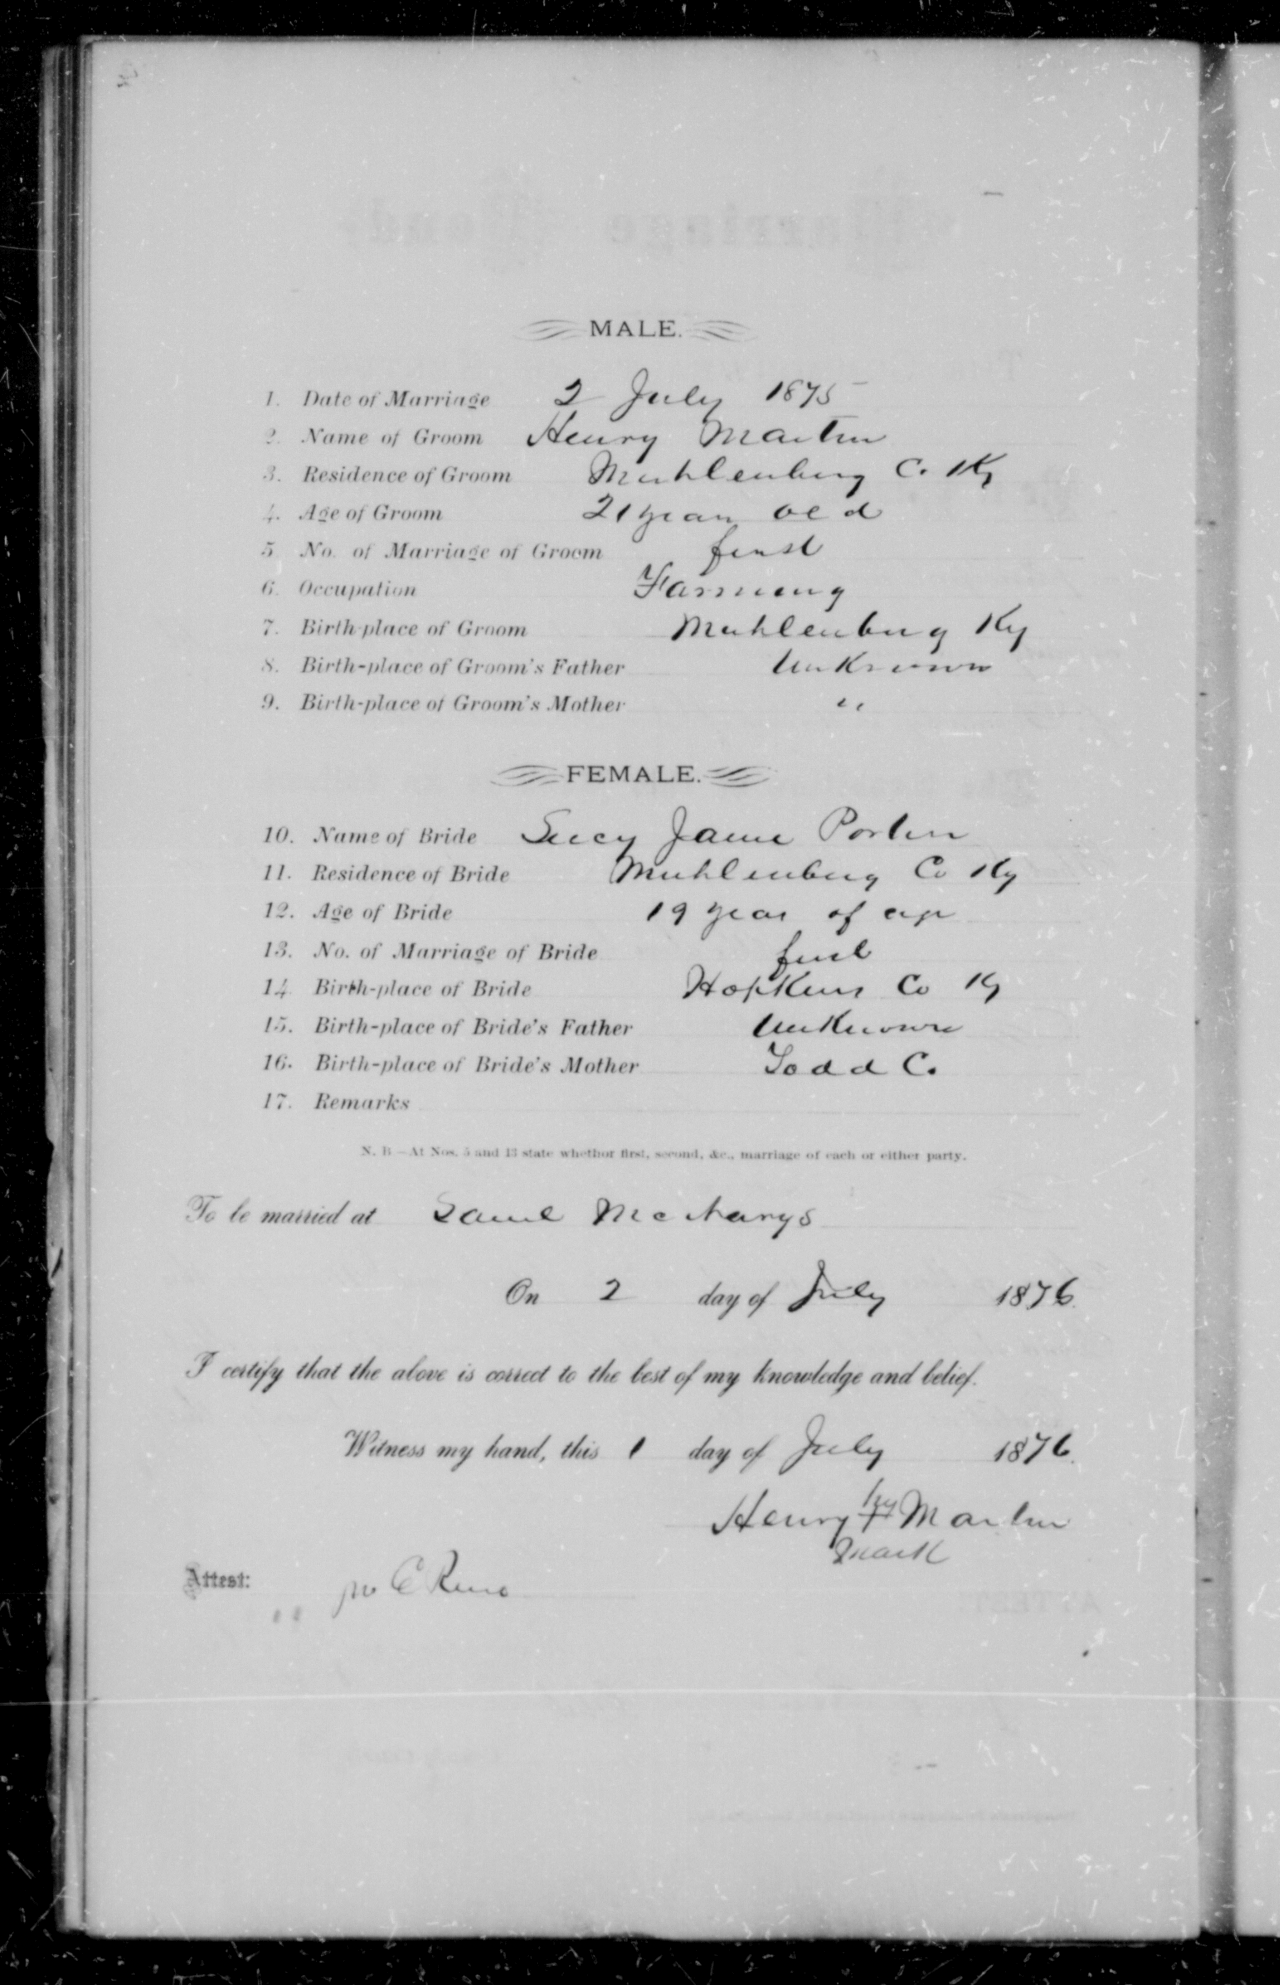 MALE.
1. Date of Marriage 2 July 1875
2. Name of Groom Henry Martin
3. Residence of Groom Muhlenberg C. Ky
4. Age of Groom 21 years old
5. No. of Marriage of Groom first
6. Occupation Farming
7. Birth-place of Groom Muhlenburg Ky
8. Birth-place of Groom's Father Unknown
9. Birth-place of Groom's Mother "
FEMALE.
10. Name of Bride Lucy Jane Porter
11. Residence of Bride Muhlenburg Co Ky
12. Age of Bride 19 year of age
13. No. of Marriage of Bride first
14. Birth-place of Bride Hopkins Co Ky
15. Birth-place of Bride's Father Unknown
16. Birth-place of Bride's Mother Todd C.
17. Remarks
N. B.—At Nos. 5 and 13 state whethor first, second, &c., marriage of each or either party.
To be married at Saml McNarys
On 2 day of July 1876.
I certify that the above is correct to the best of my knowledge and belief.
Witness my hand, this 1 day of July 1876.
Henry his + Martin
mark
Attest: Jno C Reno